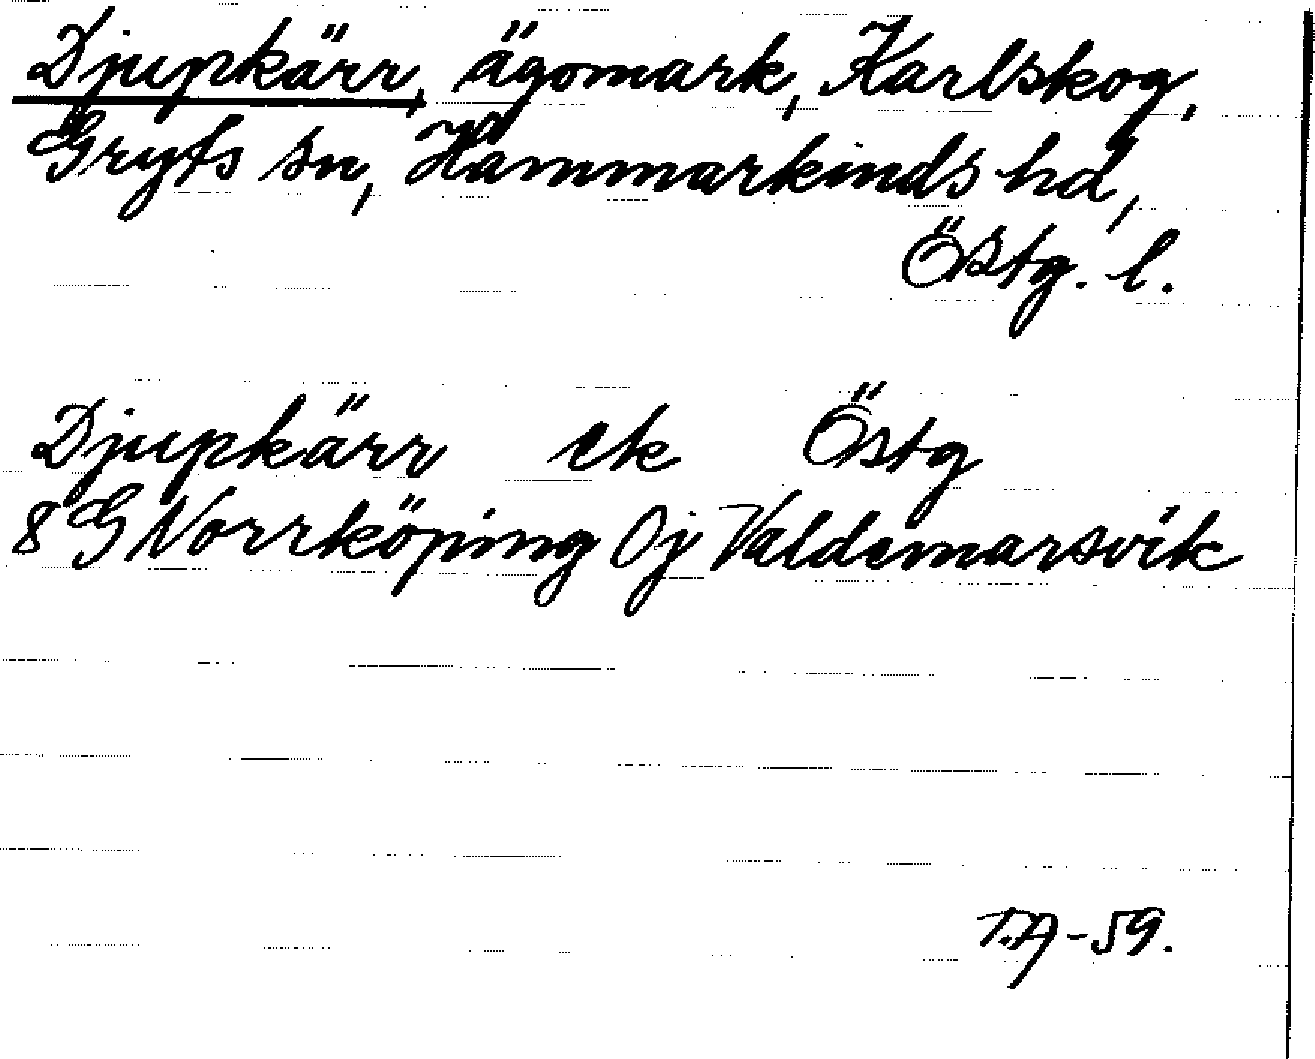 Djupkärr, ägomark, Karlskog,
Gryts sn, Hammarkinds hd,
Östg. l.
Djupkärr ek Östg
8 G Norrköping Oj Valdemarsvik
T.A-59.